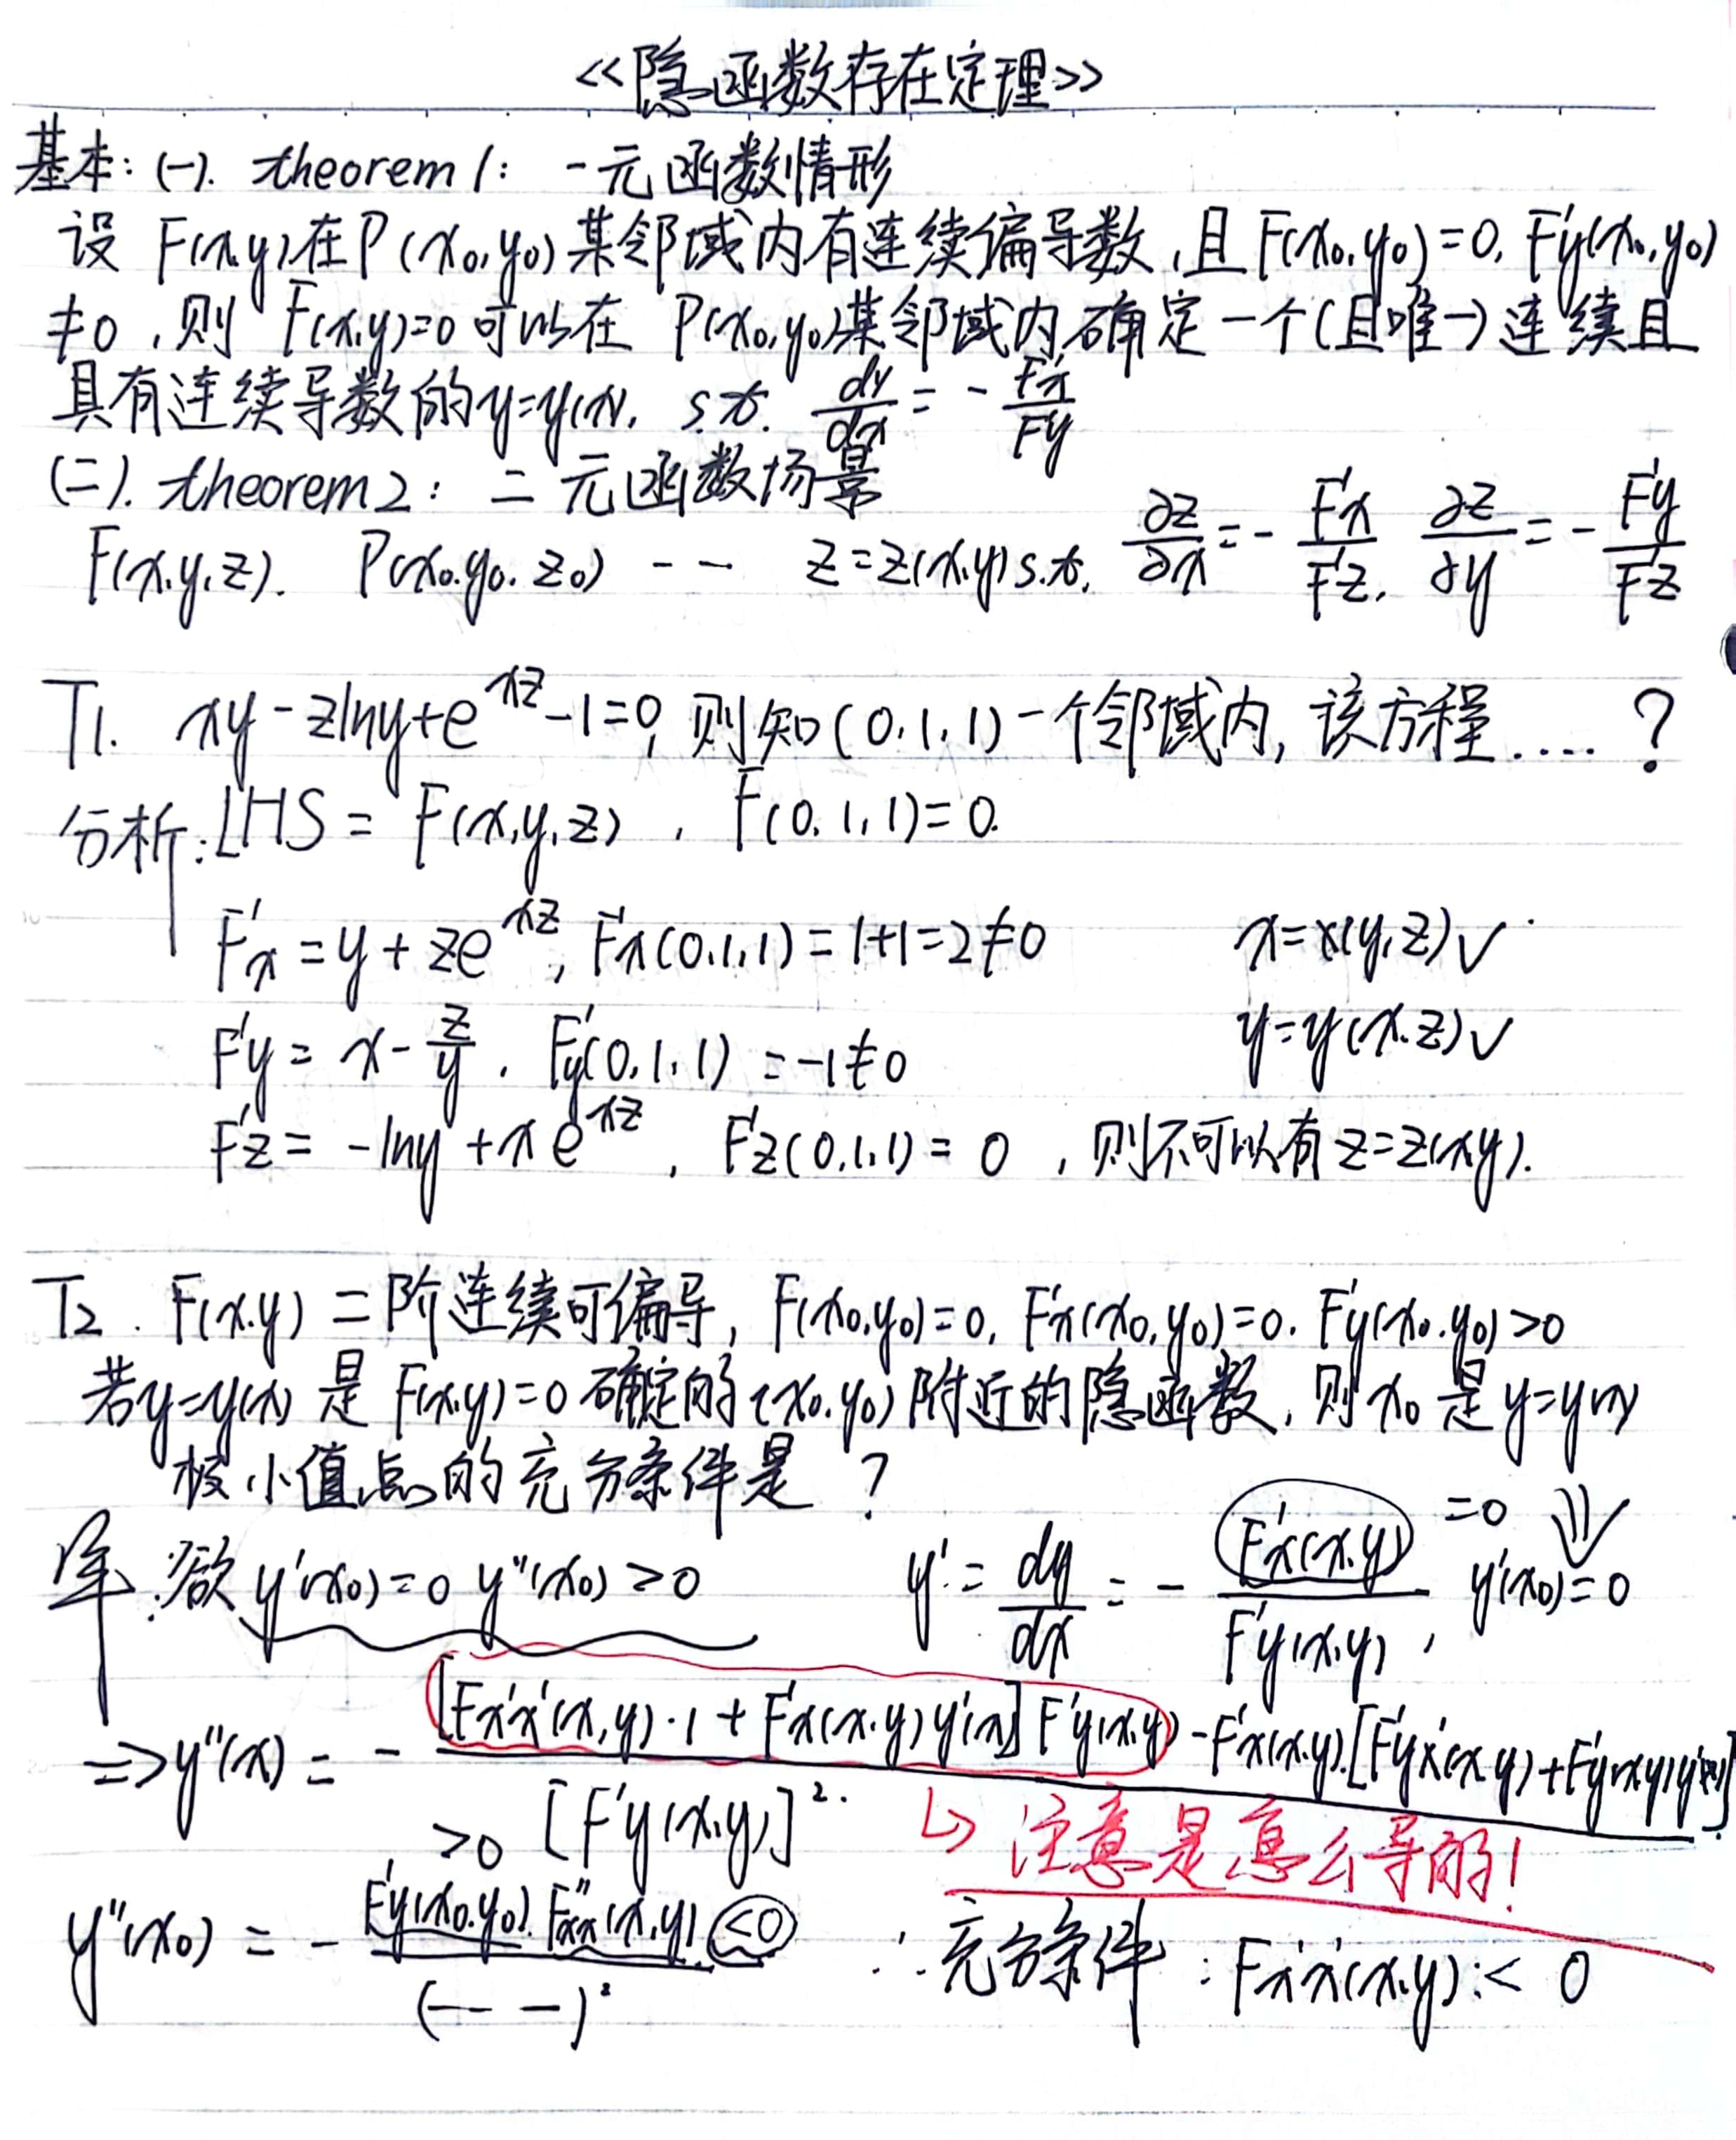 <<隐函数存在定理>>
基本: (一). theorem 1: 一元函数情形
设 F(x,y)在P(x₀,y₀)某邻域内有连续偏导数,且F(x₀,y₀)=0, F'y(x₀,y₀)
≠0,则 F(x,y)=0可以在 P(x₀,y₀)某邻域内确定一个(且唯一)连续且
具有连续导数的y=y(x), s.t. dy/dx = - F'x/F'y
(二). theorem2: 二元函数场景
F(x,y,z). P(x₀,y₀,z₀) -- z=z(x,y)s.t. ∂z/∂x = - F'x/F'z, ∂z/∂y = - F'y/F'z
T1. xy-zlny+e^xz-1=0, 则知(0,1,1)一个邻域内, 该方程....?
分析:LHS = F(x,y,z), F(0,1,1)=0.
F'x=y+ze^xz, F'x(0,1,1)=1+1=2≠0 x=x(y,z)√
F'y=x-z/y, F'y(0,1,1)=-1≠0 y=y(x,z)√
F'z=-lny+xe^xz, F'z(0,1,1)=0, 则不可以有z=z(x,y).
T2. F(x,y)二阶连续可偏导, F(x₀,y₀)=0, F'x(x₀,y₀)=0. F'y(x₀,y₀)>0
若y=y(x)是F(x,y)=0确定的(x₀,y₀)附近的隐函数,则x₀是y=y(x)
极小值点的充分条件是?
解:欲y'(x₀)=0 y''(x₀)>0 y'=dy/dx=-F'x(x,y)/F'y(x,y), =0 ⇓ y'(x₀)=0
=>y''(x)=-[F'x'x(x,y)·1+F'x(x,y)y'(x)]F'y(x,y)-F'x(x,y).[F'y'x(x,y)+F'y(x,y)y'(x)]/[F'y(x,y)]².
>0 ↳注意是怎么导的!
y''(x₀)=-F'y(x₀,y₀).F''xx(x,y)<0/(---)² ∴充分条件:F'x'x(x,y)<0